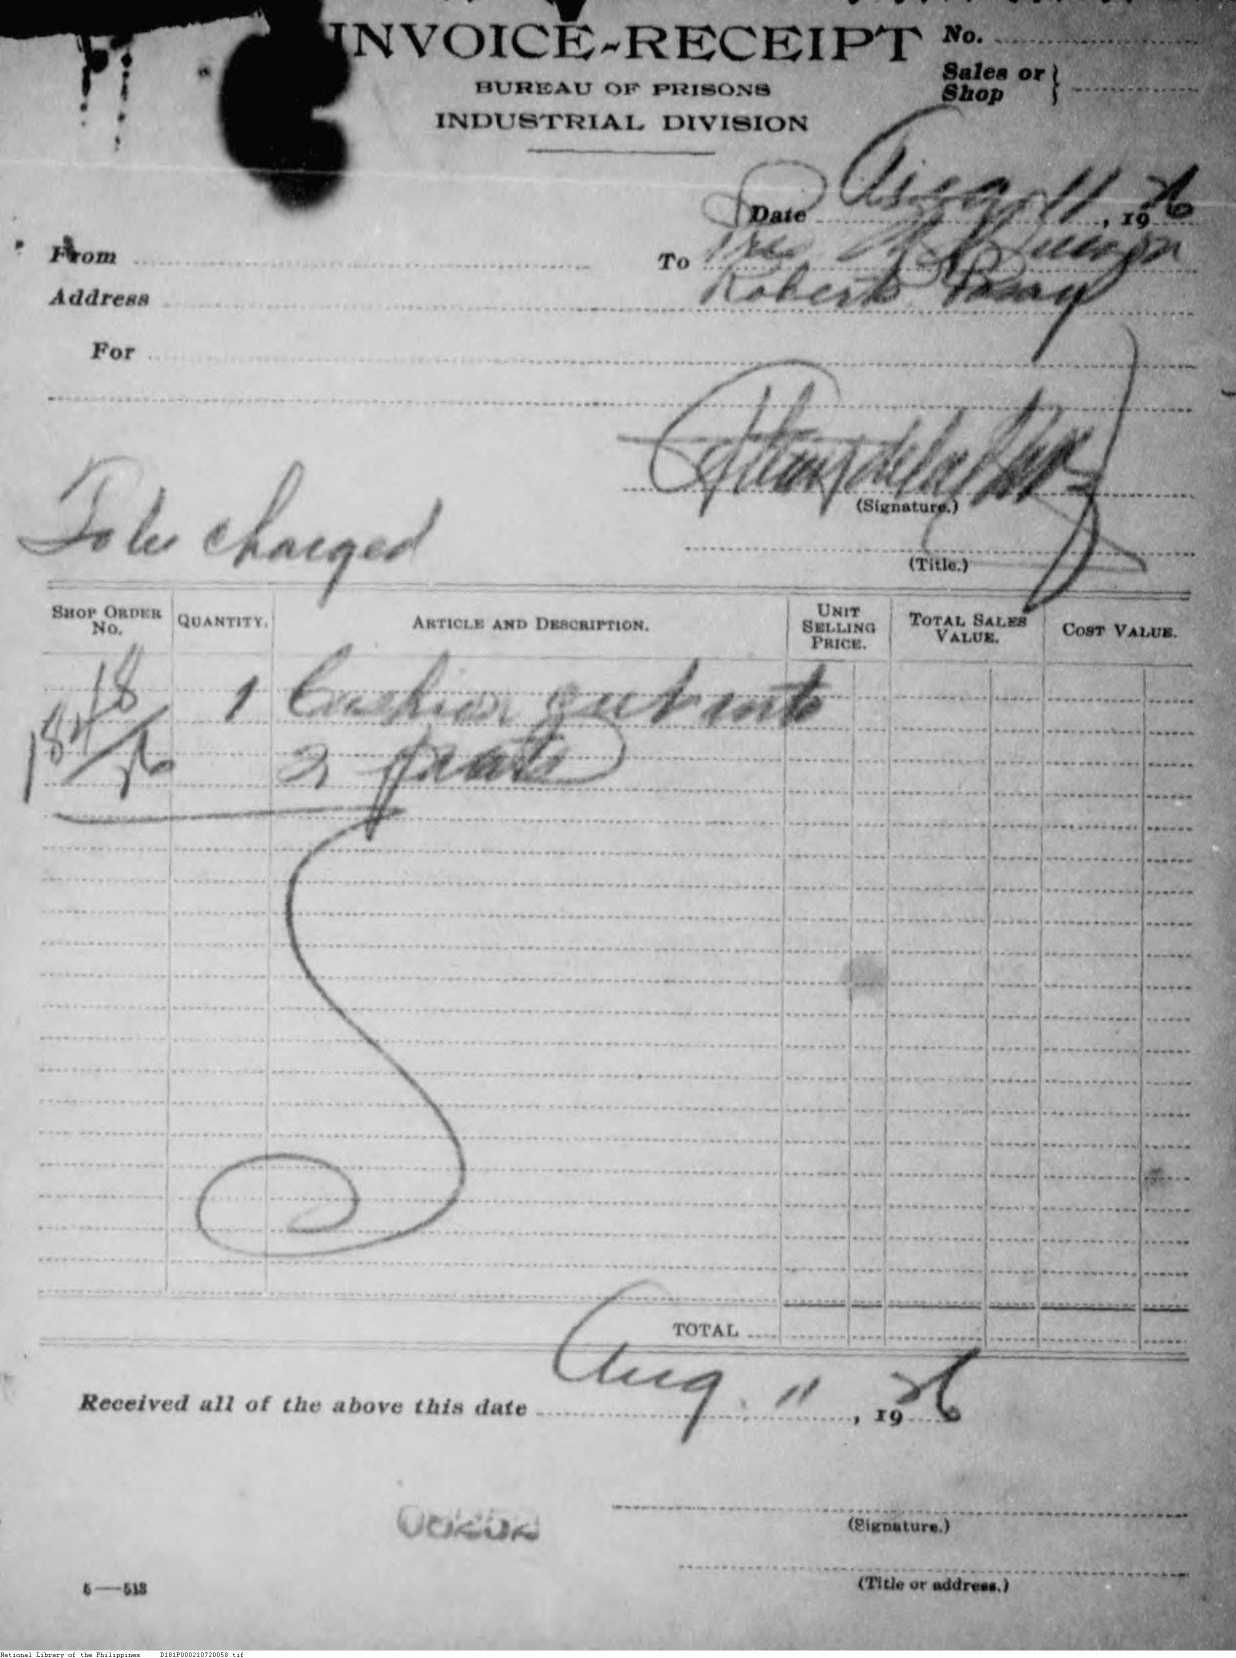 INVOICE-RECEIPT
No.
BUREAU OF PRISONS
Sales or Shop }
INDUSTRIAL DIVISION
Date Aug 11, 1926
From
To Mrs. M. L. Quezon
Address Roberts Pasay
For
(Signature.)
To be charged
(Title.)
SHOP ORDER No. QUANTITY. ARTICLE AND DESCRIPTION. UNIT SELLING PRICE. TOTAL SALES VALUE. COST VALUE.
18 1 Cushion cut into
184/26 2 parts
TOTAL
Received all of the above this date Aug. 11, 1926
(Signature.)
(Title or address.)
5—513
National Library of the Philippines D181P000210720058.tif